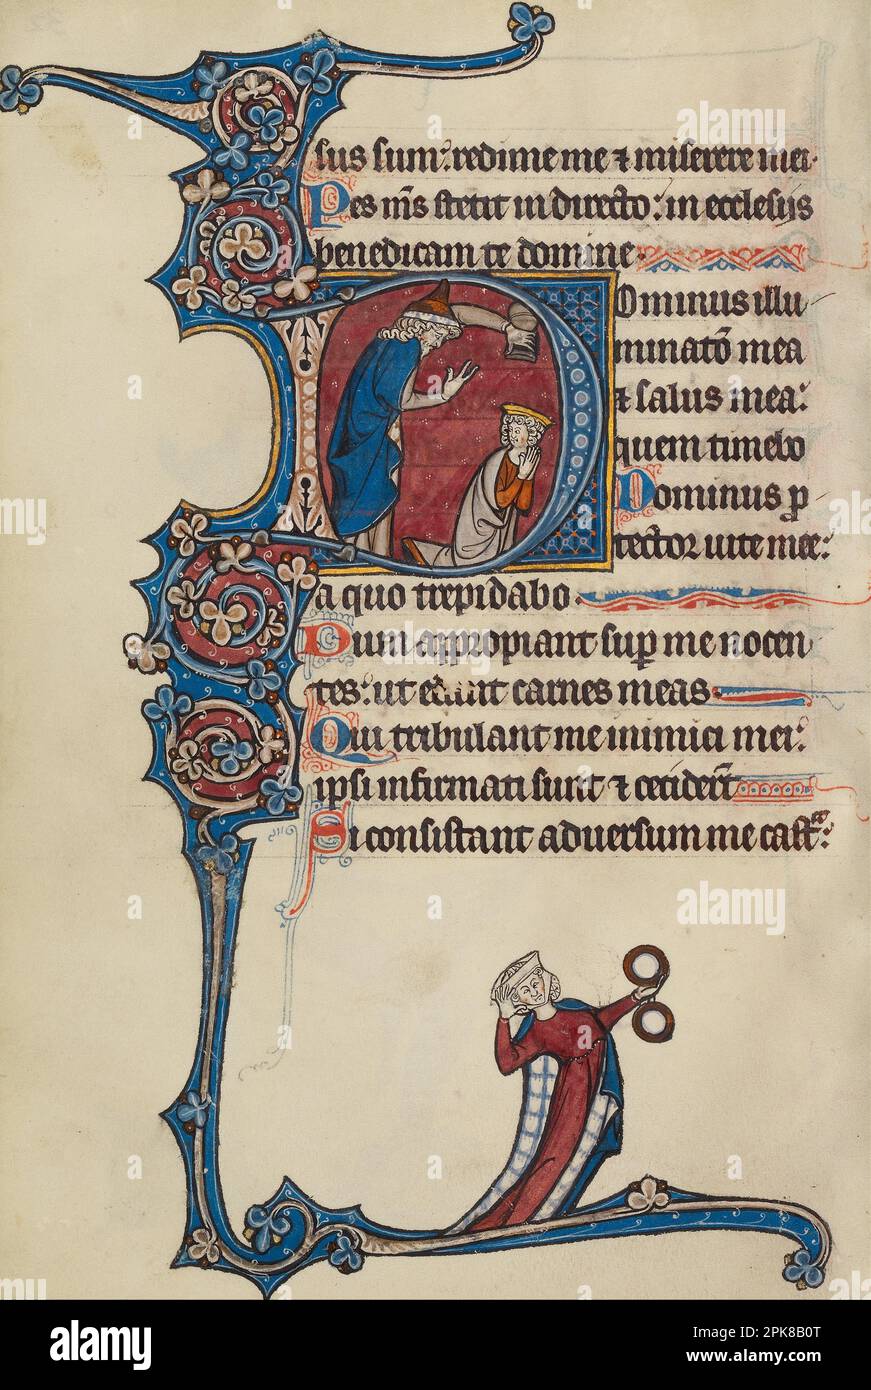 sus sum: redime me ⁊ miserere mei·
Pes m̅s stetit in directo: in ecclesiis
benedicam te domine·
Dominus illu
minatō mea
⁊ salus mea:
quem timebo
Dominus ꝓ
tector uite mee:
a quo trepidabo·
Dum appropiant suꝑ me nocen
tes: ut edant carnes meas·
Qui tribulant me inimici mei:
ipsi infirmati sunt ⁊ cecider̅t
Si consistant aduersum me castra:
alamy
Image ID: 2PK8B0T
www.alamy.com